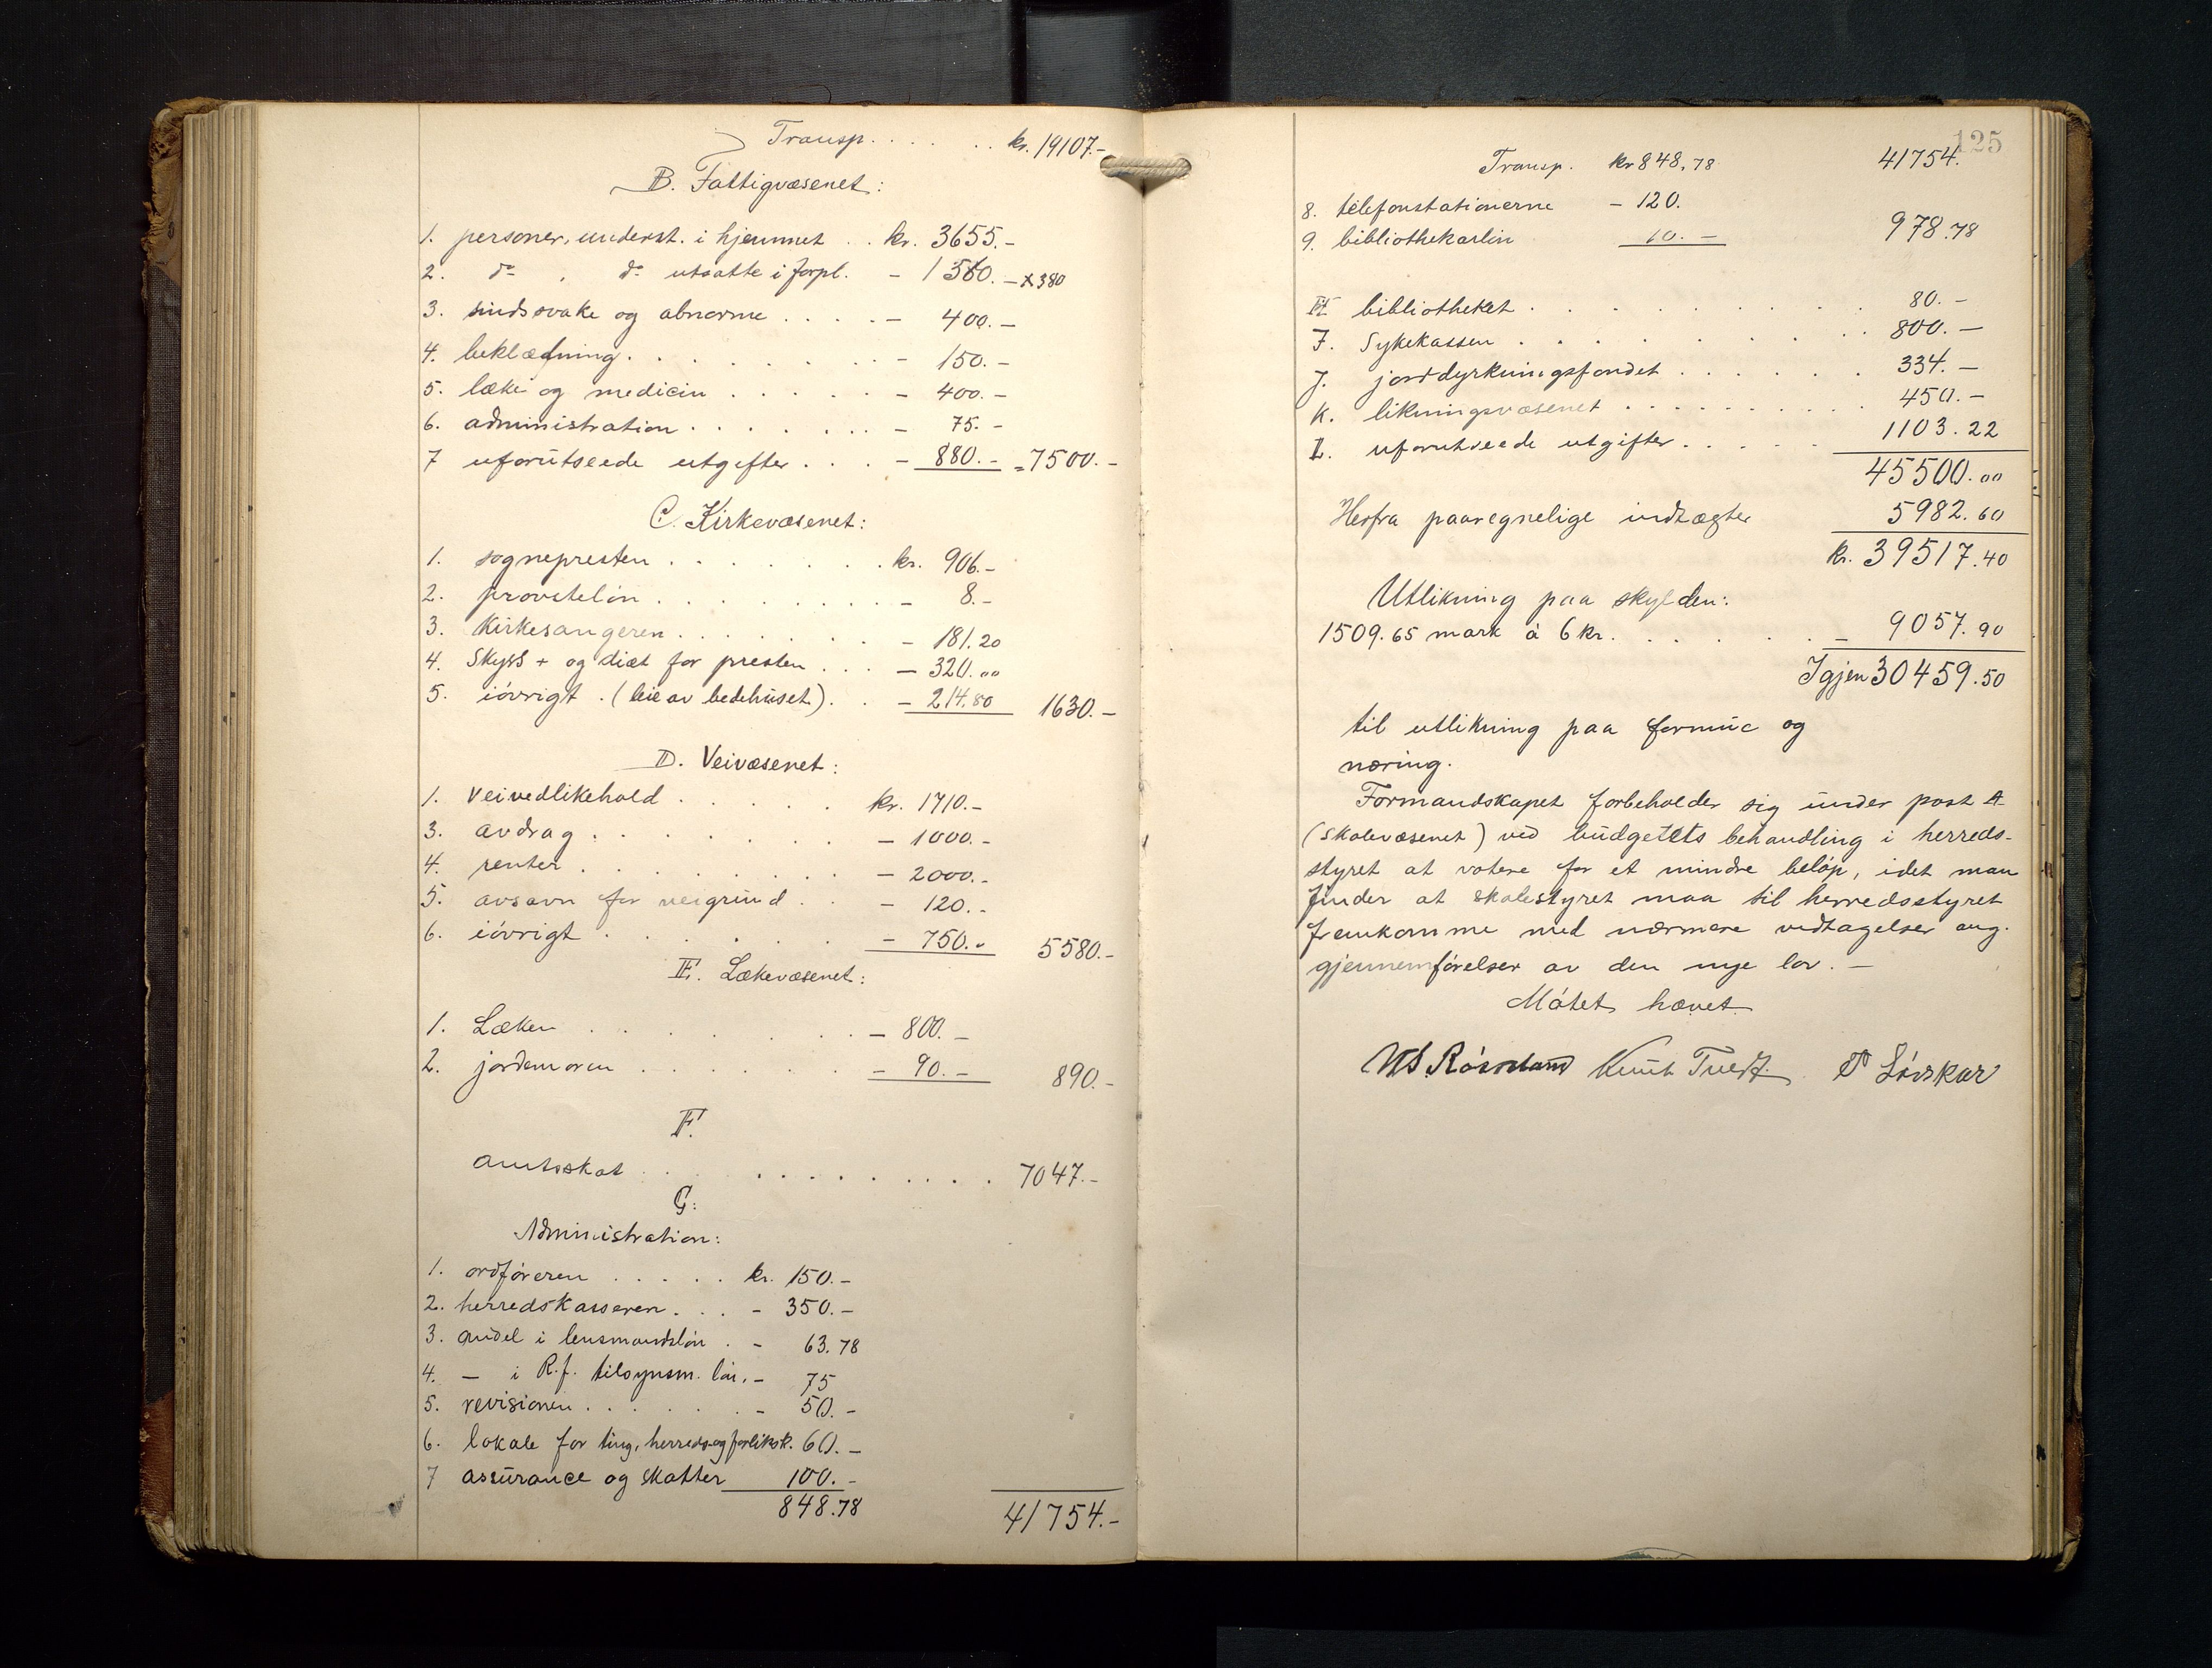 Transp. . . . . . . kr. 19107.-
B. Fattigvæsenet:
1. personer, underst. i hjemmet . . kr. 3655.-
2. do , do utsatte i forpl. - 1560.- x380
3. sindssvake og abnorme . . . . - 400.-
4. beklædning . . . . . . . . - 150.-
5. læke og medicin . . . . . - 400.-
6. administration . . . . . . . - 75.-
7 uforutseede utgifter . . . - 880.- = 7500.-
C. Kirkevæsenet:
1. sognepresten . . . . . . . . kr. 906.-
2. provstelön . . . . . . . . . - 8.-
3. Kirkesangeren . . . . . . . - 181.20
4. Skyss + og diæt for presten . . . - 320.00
5. iövrigt . (leie av bedehuset) . . - 214.80 1630.-
D. Veivæsenet:
1. Veivedlikehold . . . . . kr. 1710.-
3. avdrag . . . . . . . - 1000.-
4. renter . . . . . . . . . - 2000.-
5. avsavn for veigrund . . - 120.-
6. iövrigt . . . . . . - 750.- 5580.-
E. Lækevæsenet:
1. Læken . . . . . . - 800.-
2. jordemoren . . . . . . - 90.- 890.-
F.
amtsskat . . . . . . . . . . 7047.-
G:
Administration:
1. ordföreren . . . . . kr. 150.-
2. herredskasseren . . . - 350.-
3. andel i lensmandslön . - 63.78
4. - i R.f. tilsynsm. lön. - 75
5. revisionen . . . . . . . - 50.-
6. lokale for ting, herreds-og forliksk. 60.-
7 assurance og skatter 100.-
848.78 41754.-
125
Transp. kr 848,78 41754.
8. telefonstationerne - 120.
9. bibliothekarlön 10.- 978.78
H bibliotheket . . . . . . . . . 80.-
I. Sykekassen . . . . . . . . . 800.-
J. jorddyrkningsfondet . . . . . . 334.-
K. likningsvæsenet . . . . . . . . . . 450.-
L. uforutseede utgifter . . . . . 1103.22
45500.00
Herfra paaregnelige indtægter 5982.60
kr. 39517.40
Utlikning paa skylden:
1509.65 mark à 6 kr. . . . . . . - 9057.90
Igjen 30459.50
til utlikning paa formue og
næring.
Formandskapet forbeholder sig under post A
(skolevæsenet) ved budgettets behandling i herreds-
styret at votere for et mindre belöp, idet man
finder at skolestyret maa til herredsstyret
fremkomme med nærmere vedtagelser ang.
gjennemförelser av den nye lov. -
Mötet hævet
Knut Tvedt. Lövskar